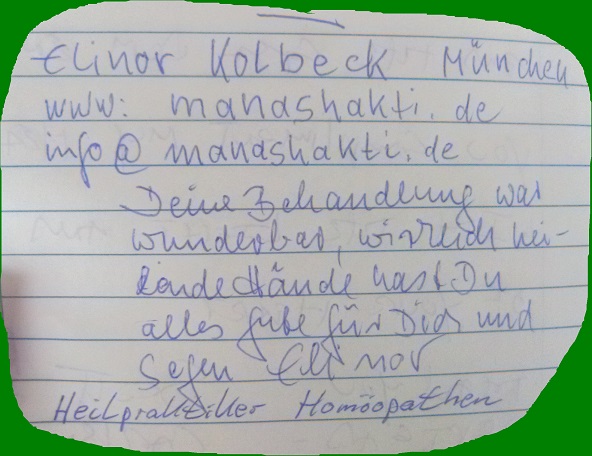 Elinor Kolbeck München
www: manashakti.de
info@manashakti.de
Deine Behandlung war
wunderbar, wirklich hei-
lende Hände hast Du
alles gute für Dich und
Segen Elinor
Heilpraktiker Homöopathen